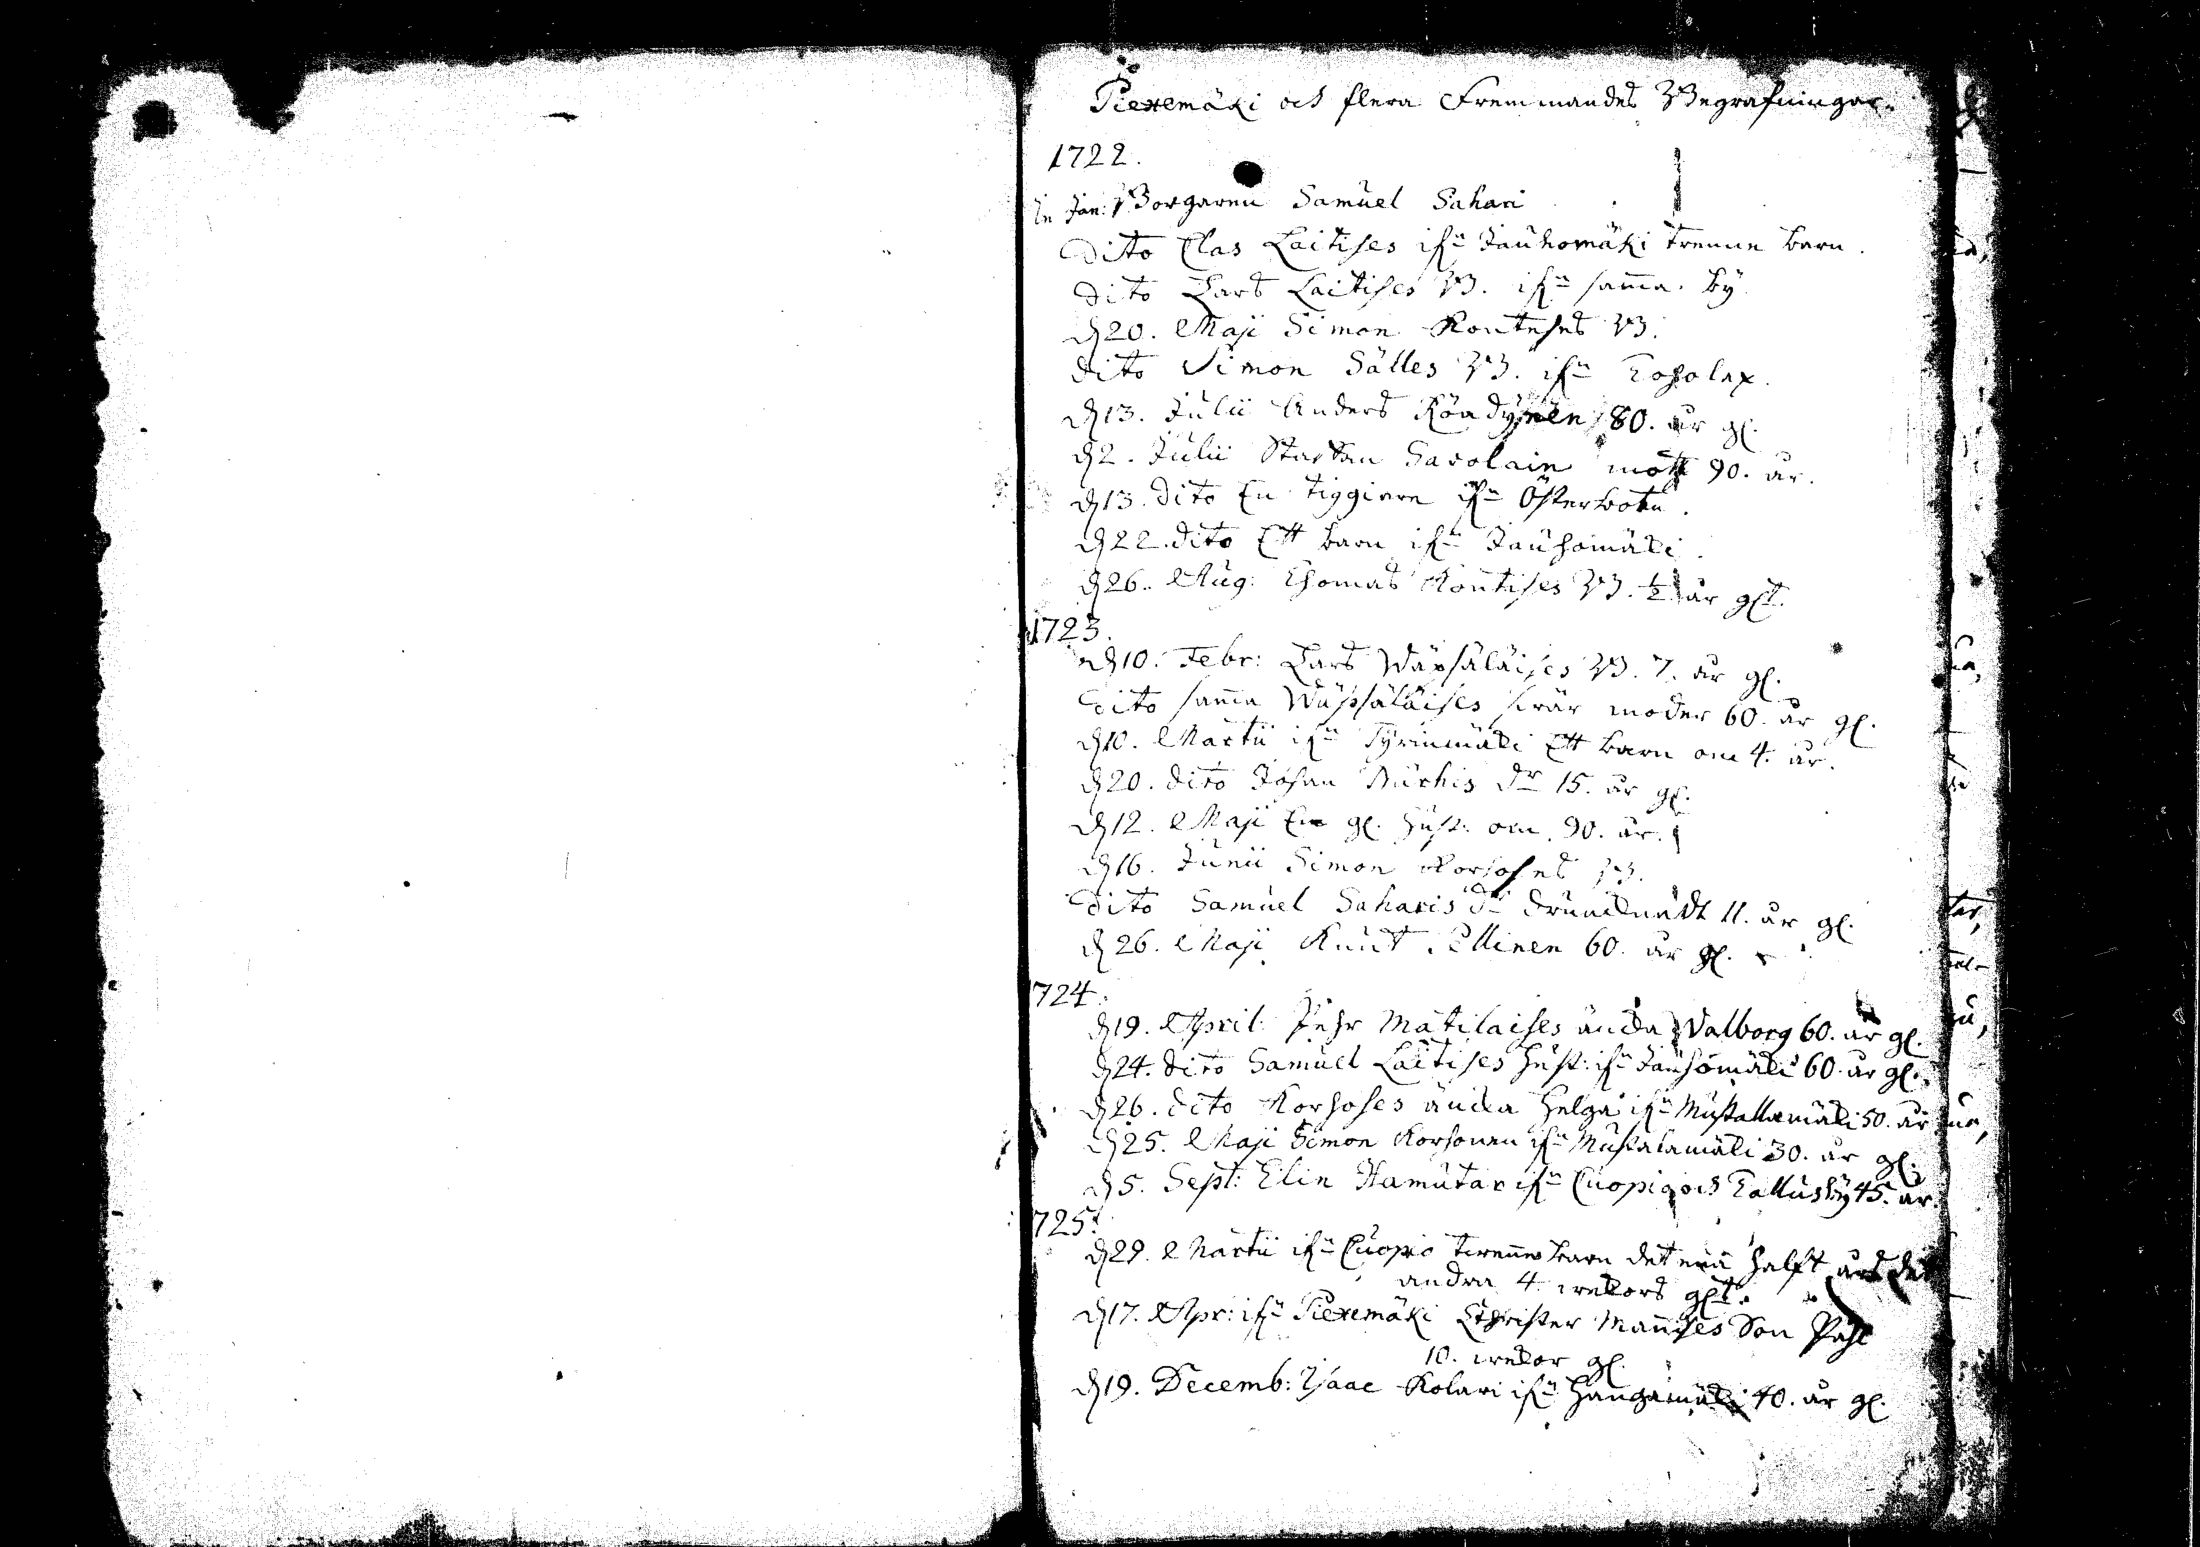 Piexemäki och flera Fremmandes Begrafningar.
1722.
In Jan: Borgaren Samuel Sahari
Dito Clas Laitises ifrn Jauhomäki trenne barn.
dito Lars Laitises B. ifrn samma by
d 20. Maji Simon Kontises B.
dito Simon Sälles B. ifrn
d 13. Julii Anders 80. år gl.
d 2. Julii Staffan Savolain mott 90. år.
d 13. dito En tiggiare ifrn Österbotn.
d 22. dito Ett barn ifrn Jauhomäki.
d 26. Aug: Thomas Kontises B. ½ år glt.
1723.
d 10. Febr: Lars Wäpsäläises B. 7. år gl.
dito samma Wäpsäläises swär moder 60. år gl.
d 10. Martii ifrn Tyrinmäki Ett barn om 4. år.
d 20. dito Johan dr 15. år gl.
d 12. Maji En gl. hust: om 90. år.
d 16. Junii Simon Korhoses B.
dito Samuel Saharis dr druncknadt 11. år gl.
d 26. Maji Knut Pellinen 60. år gl.
1724.
d 19. April: Pehr Matilaises äncka Valborg 60. år gl.
d 24. dito Samuel Laitises hust: ifrn Jauhomäki 60. år gl.
d 26. dito Korhoses äncka Helga ifrn Mustallamäki 50. år
d 25. Maji Simon Korhonen ifrn Mustalamäki 30. år gl.
d 5. Sept: Elin Hamutar ifrn Cuopio och Tallusby 45. år.
1725.
d 29. Martii ifrn Cuopio twenne barn det ena halft års det
andra 4 wekors glt.
d 17. Apr: ifrn Piexemäki Christer Mannises Son Påhl
10. wekor gl.
d 19. Decemb: Isaac Kolari ifrn Hangamäki 40. år gl.